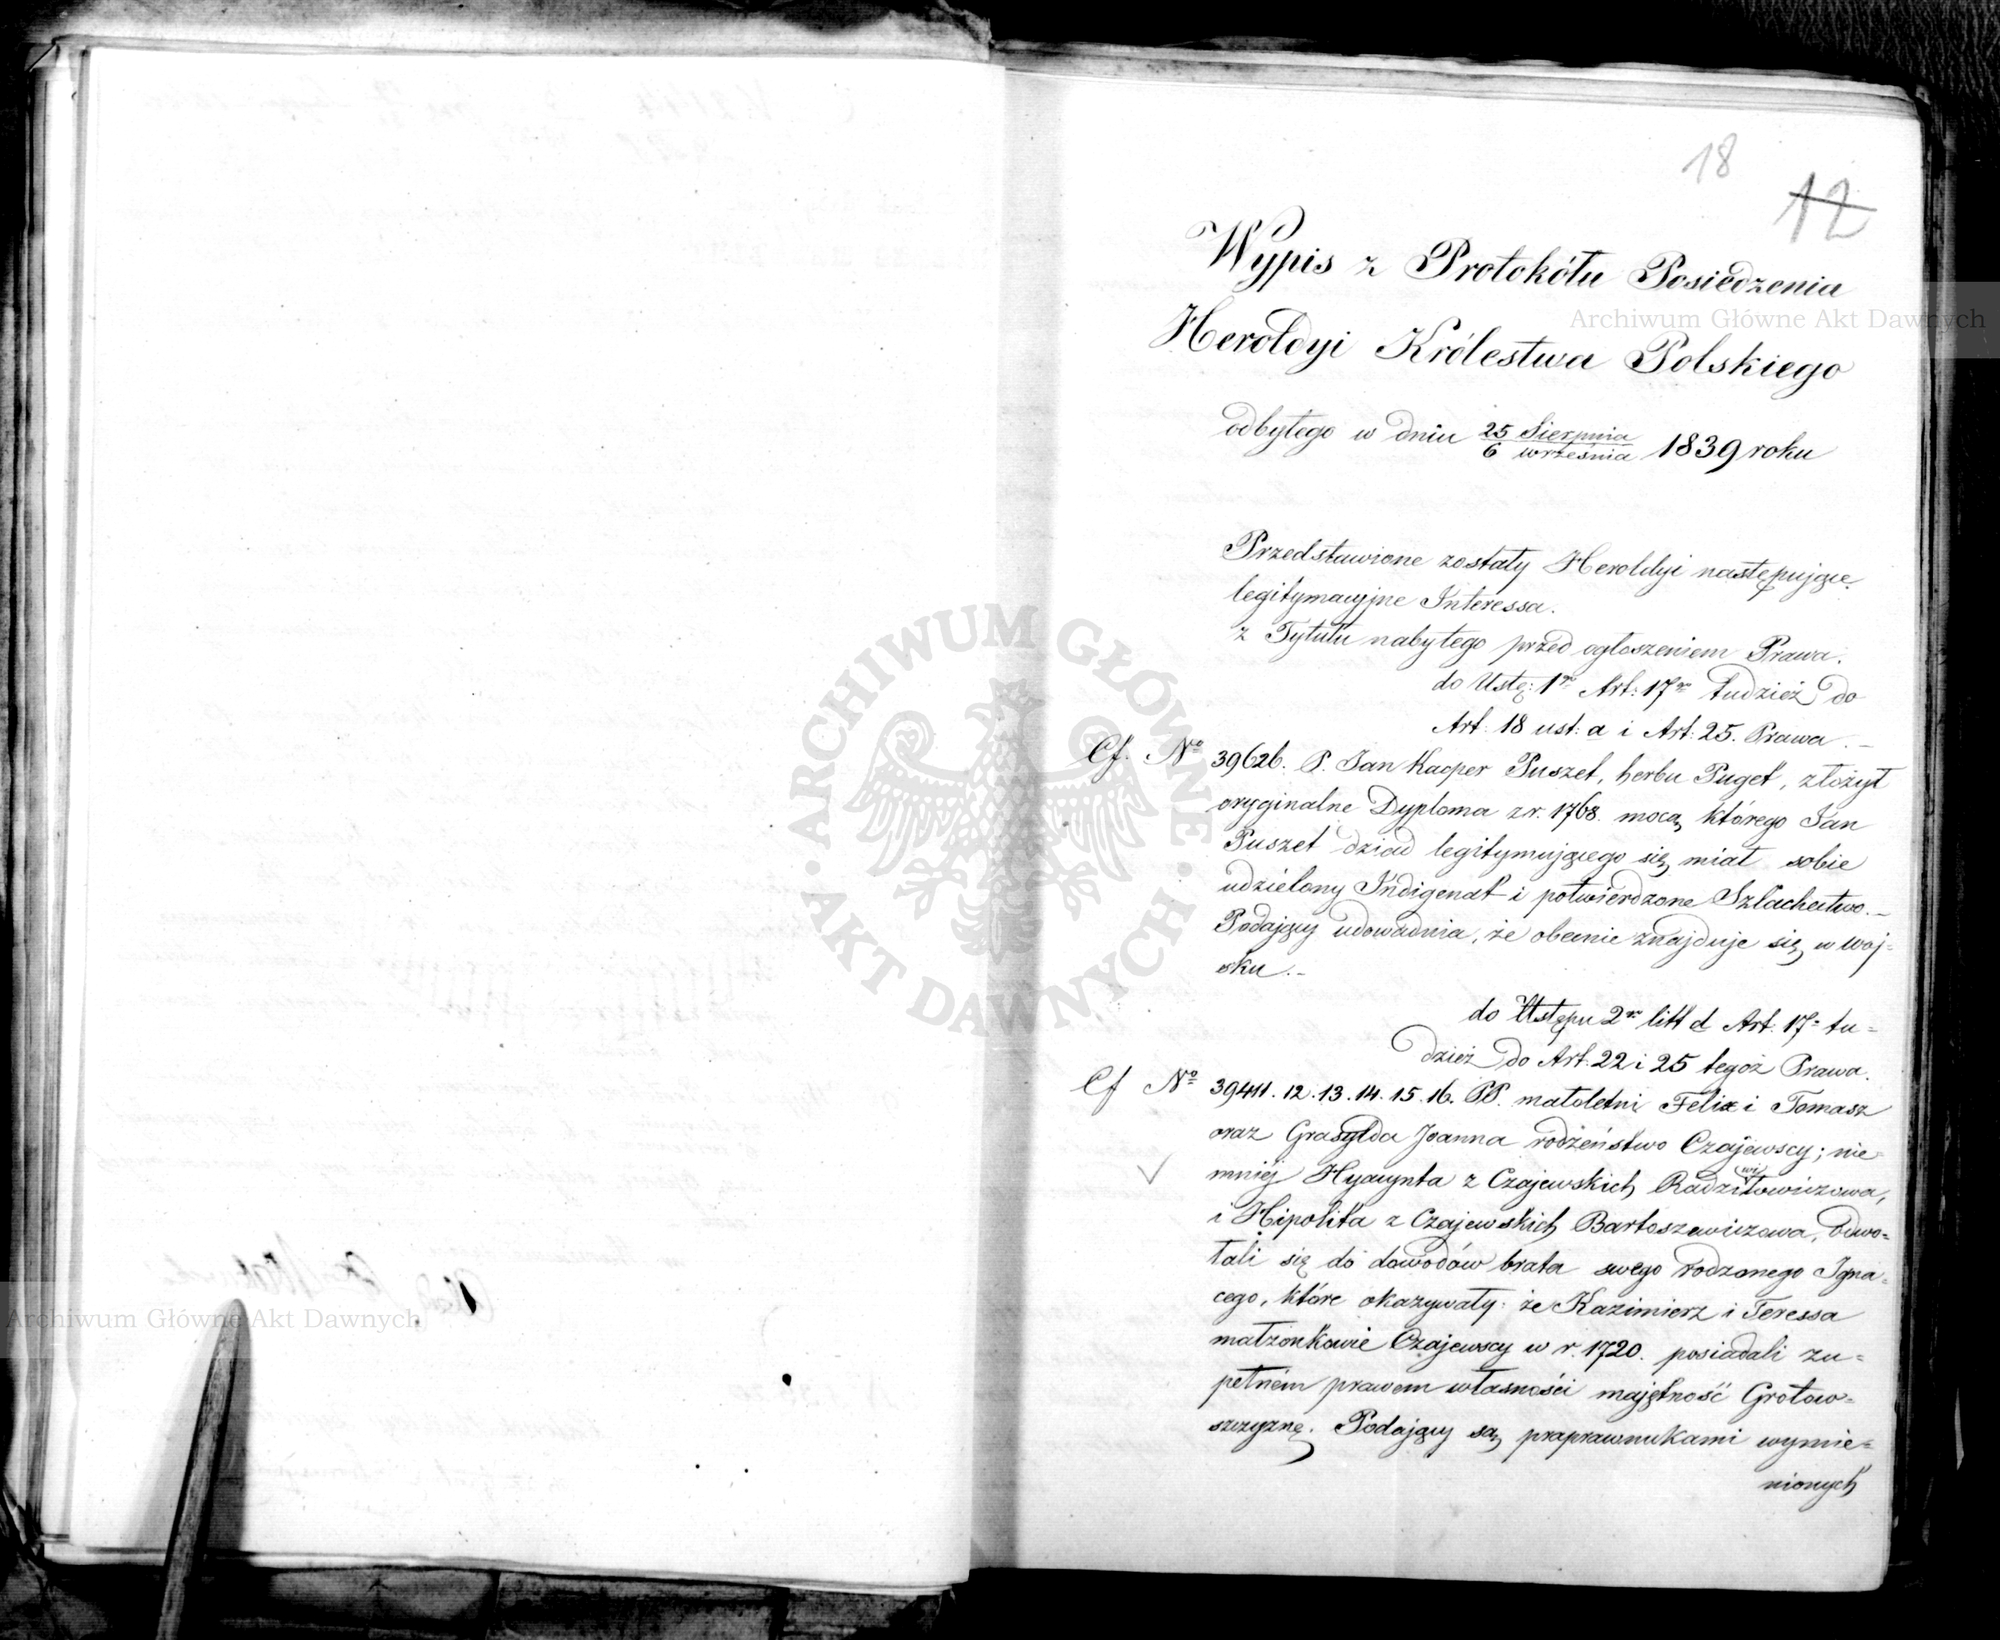 18
12
Wypis z Protokółu Posiedzenia
Heroldyi Królestwa Polskiego
odbytego w dniu 25 Sierpnia / 6 września 1839 roku
Przedstawione zostały Heroldyi następujące
legitymacyjne Interessa.
z Tytułu nabytego przed ogłoszeniem Prawa.
do Ustę: 1º Art: 17º tudzież do
Art: 18 ust: a i Art: 25. Prawa. –
Cf. Nº 39626. P. Jan Kacper Puszet, herbu Puget, złożył
oryginalne Dyploma z r. 1768. mocą którego Jan
Puszet dziad legitymującego się miał sobie
udzielony Indigenat i potwierdzone Szlachectwo. –
Podający udowadnia, że obecnie znajduje się w woj=
sku. –
do Ustępu 2º litt d Art: 17º tu=
dzież do Art: 22 i 25 tegoż Prawa.
Cf Nº 39411. 12. 13. 14. 15. 16. PP. małoletni Felix i Tomasz
oraz Grasylda Joanna rodzeństwo Czajewscy; nie=
mniéj Hyacynta z Czajewskich Radziwiłowiczowa,
i Hipolita z Czajewskich Bartoszewiczowa, odwo=
łali się do dowodów brata swego rodzonego Igna=
cego, które okazywały: że Kazimierz i Teressa
małżonkowie Czajewscy w r. 1720. posiadali zu=
pełném prawem własności majętność Grotow=
szczyznę. Podający są praprawnukami wymie=
nionych
Archiwum Główne Akt Dawnych
Archiwum Główne Akt Dawnych
ARCHIWUM GŁÓWNE · AKT DAWNYCH ·